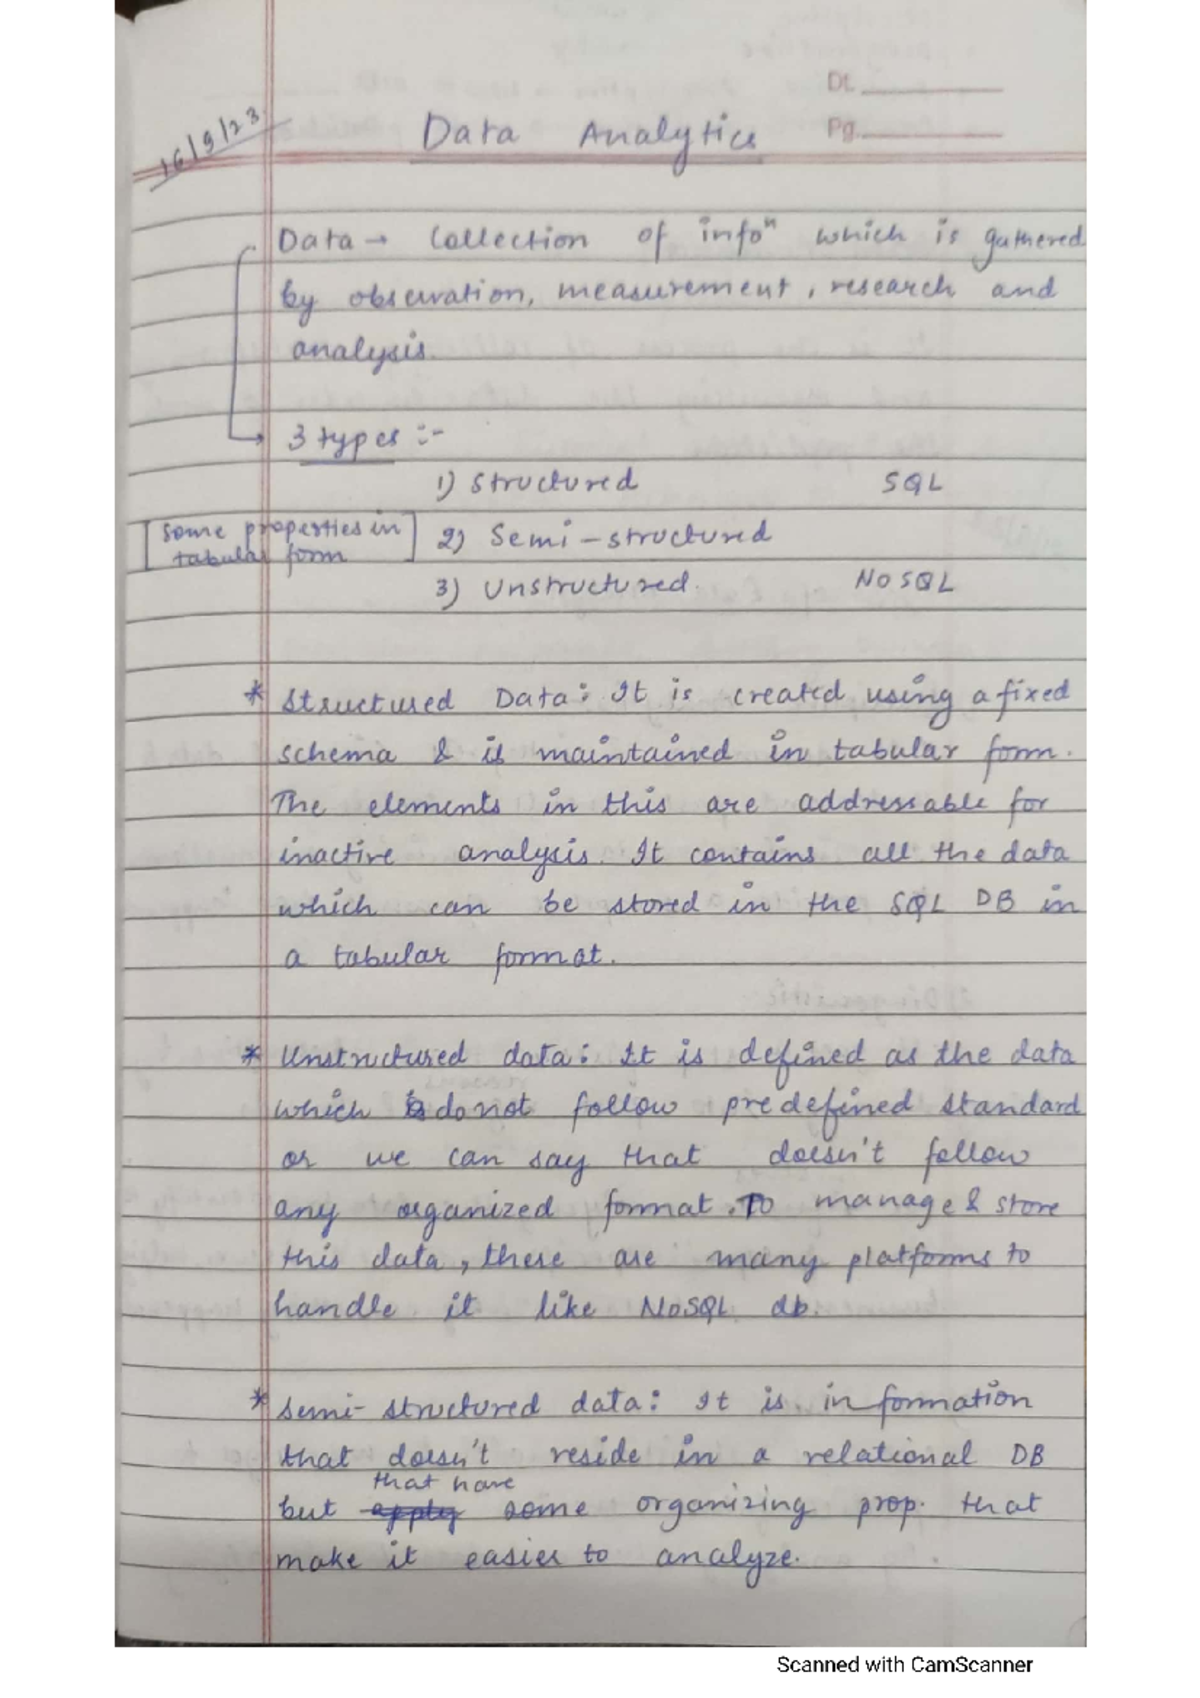 Dt.
16/9/23
Data Analytics
Pg.
Data → Collection of infoⁿ which is gathered
by observation, measurement, research and
analysis.
3 types :-
1) Structured SQL
[some properties in tabular form] 2) Semi-structured
3) Unstructured. NoSQL
* Structured Data: It is created using a fixed
schema & is maintained in tabular form.
The elements in this are addressable for
inactive analysis. It contains all the data
which can be stored in the SQL DB in
a tabular format.
* Unstructured data: It is defined as the data
which do not follow predefined standard
or we can say that doesn't follow
any organized format. To manage & store
this data, there are many platforms to
handle it like NoSQL db.
* Semi-structured data: It is information
that doesn't reside in a relational DB
that have
but apply some organizing prop. that
make it easier to analyze.
Scanned with CamScanner